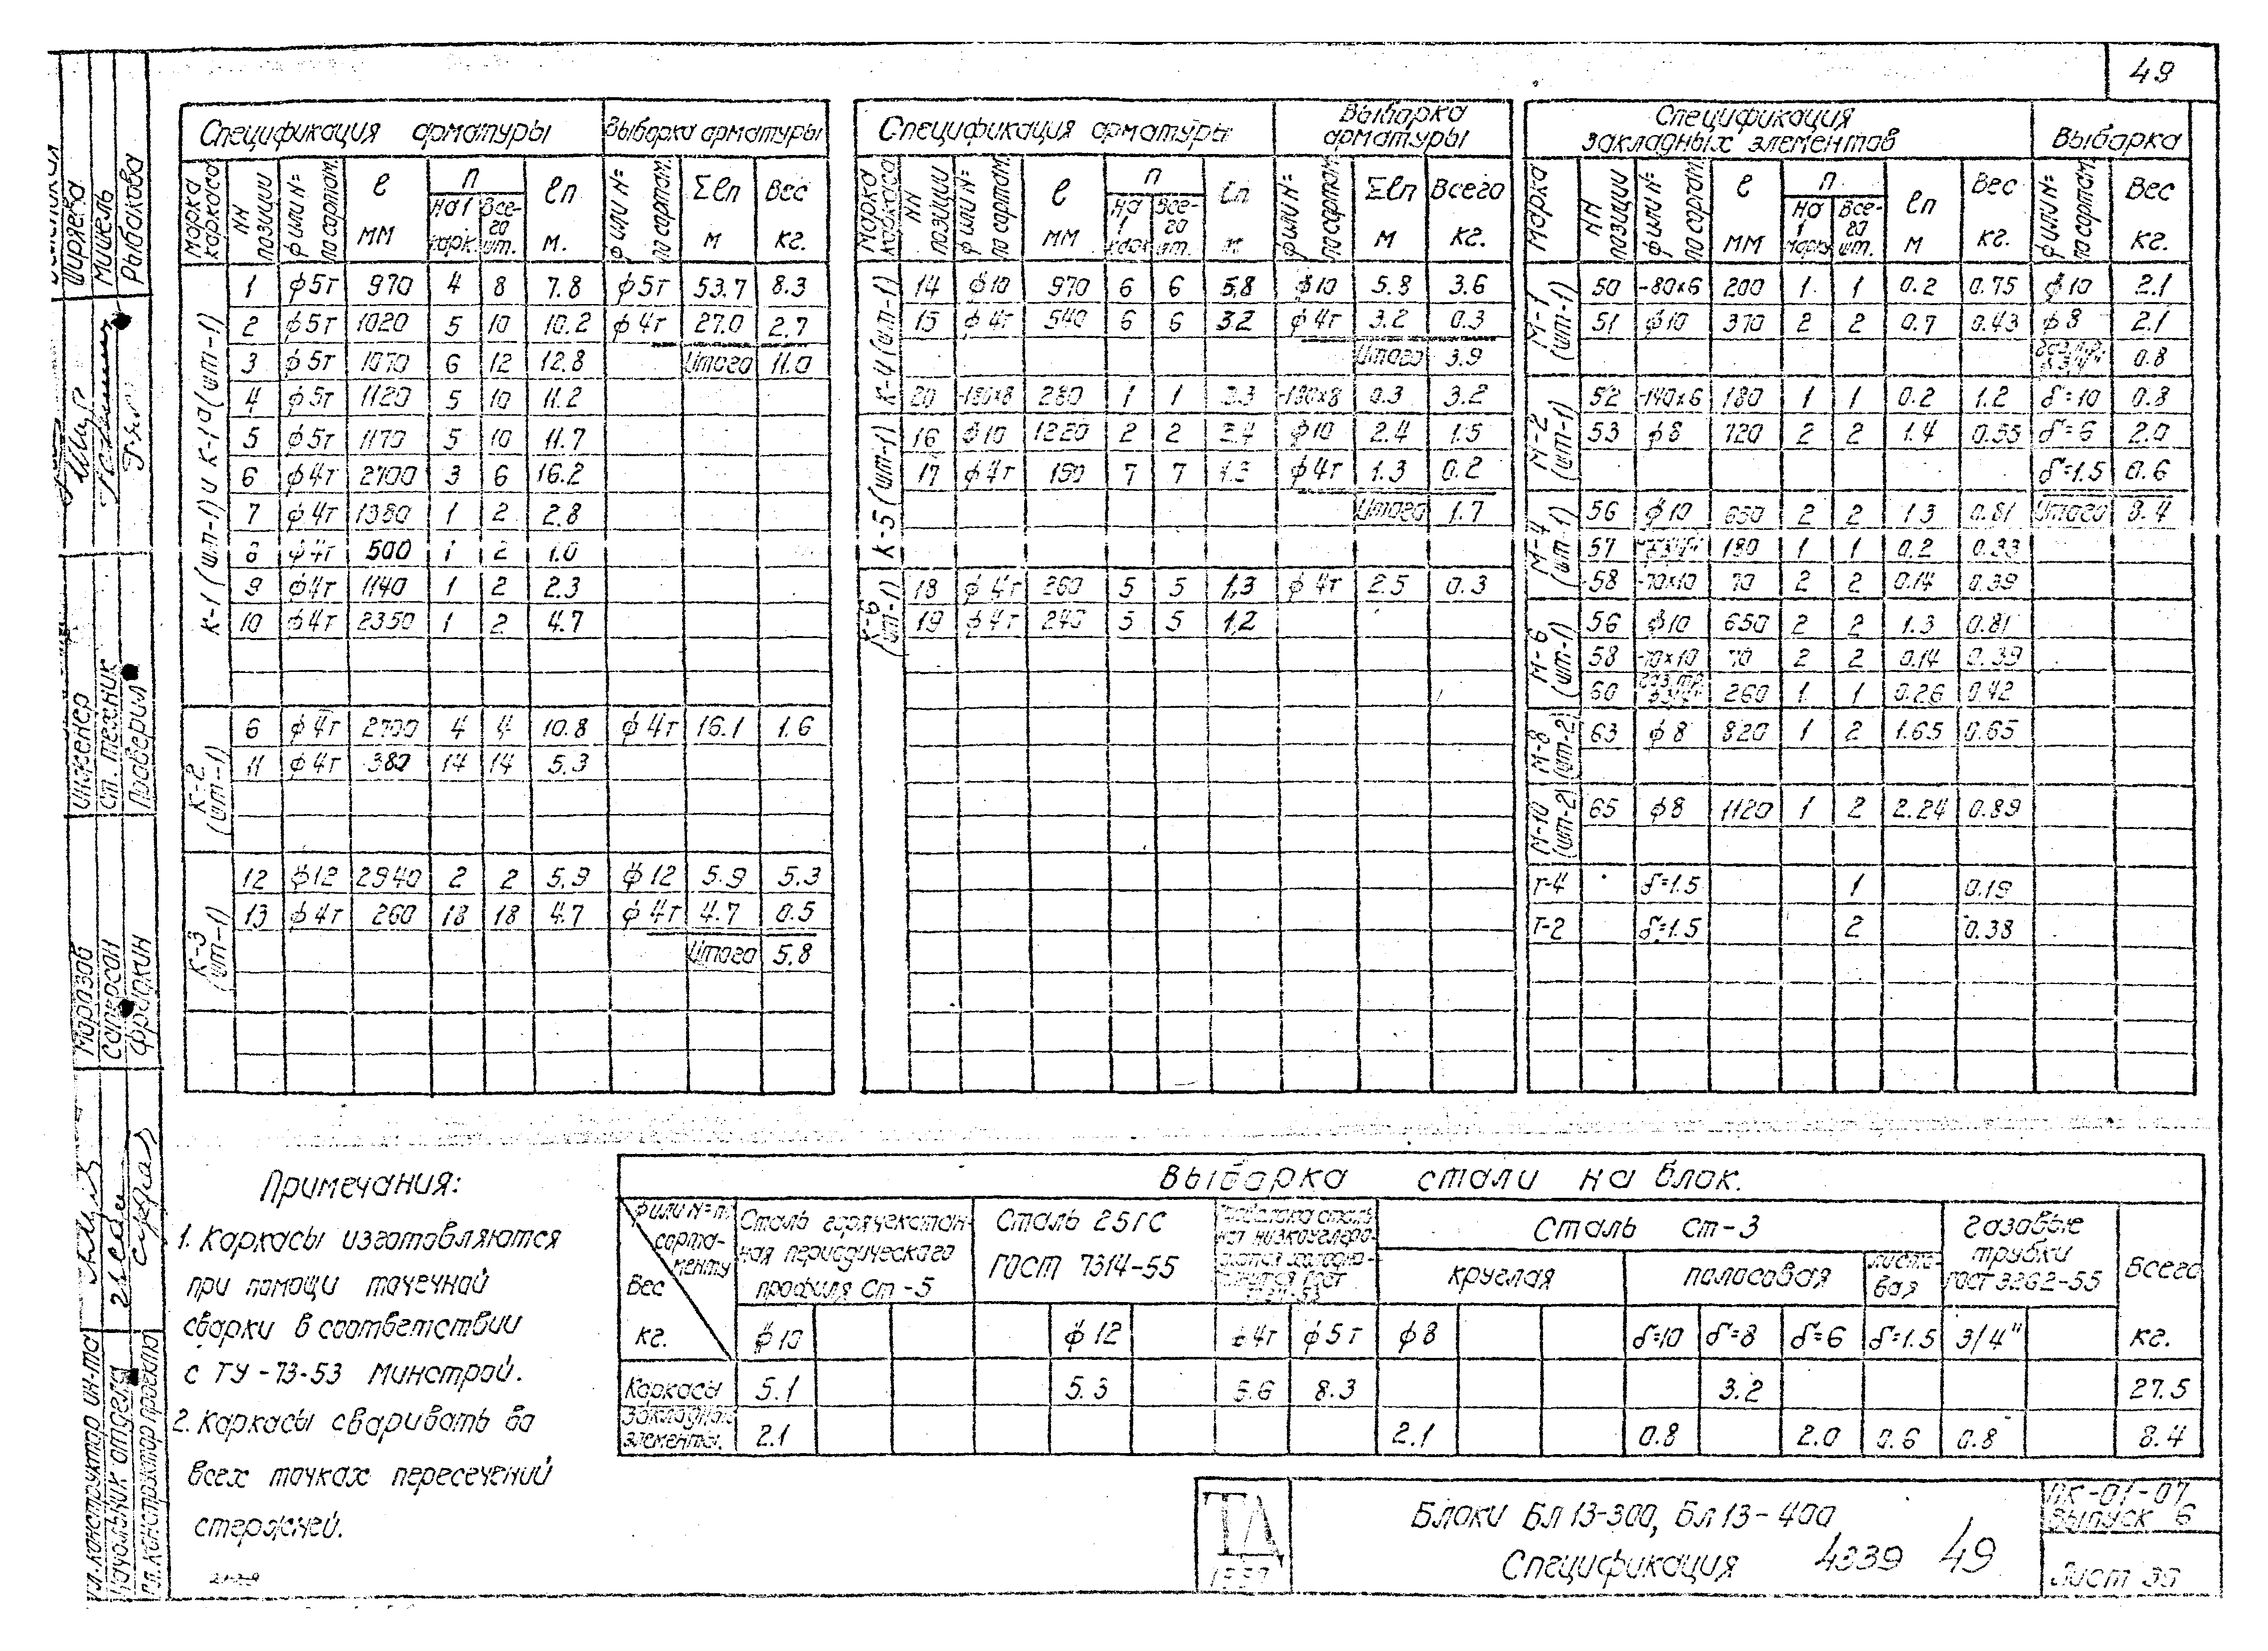 49
Спецификация арматуры | Выборка арматуры
Марка каркаса | NN позиции | ф или N= по сортам. | ℓ мм | п на 1 карк. | п Все-го шт. | ℓп м. | ф или N= по сортам. | Σℓп м | Вес кг.
К-1 (шт-1) и К-1а (шт-1)
1 | ф5т | 970 | 4 | 8 | 7.8 | ф5т | 53.7 | 8.3
2 | ф5т | 1020 | 5 | 10 | 10.2 | ф4т | 27.0 | 2.7
3 | ф5т | 1070 | 6 | 12 | 12.8 | Итого | 11.0
4 | ф5т | 1120 | 5 | 10 | 11.2
5 | ф5т | 1170 | 5 | 10 | 11.7
6 | ф4т | 2700 | 3 | 6 | 16.2
7 | ф4т | 1380 | 1 | 2 | 2.8
8 | ф4т | 500 | 1 | 2 | 1.0
9 | ф4т | 1140 | 1 | 2 | 2.3
10 | ф4т | 2350 | 1 | 2 | 4.7
К-2 (шт-1)
6 | ф4т | 2700 | 4 | 4 | 10.8 | ф4т | 16.1 | 1.6
11 | ф4т | 380 | 14 | 14 | 5.3
К-3 (шт-1)
12 | ф12 | 2940 | 2 | 2 | 5.9 | ф12 | 5.9 | 5.3
13 | ф4т | 260 | 18 | 18 | 4.7 | ф4т | 4.7 | 0.5
Итого | 5.8
Спецификация арматуры | Выборка арматуры
Марка каркаса | NN позиции | ф или N= по сортам. | ℓ мм | п на 1 карк | п Все-го шт. | ℓп м | ф или N= по сортам. | Σℓп м | Всего кг.
К-4 (шт-1)
14 | ф10 | 970 | 6 | 6 | 5,8 | ф10 | 5.8 | 3.6
15 | ф4т | 540 | 6 | 6 | 3.2 | ф4т | 3.2 | 0.3
Итого | 3.9
К-5 (шт-1)
20 | -180×8 | 280 | 1 | 1 | 0.3 | -190×8 | 0.3 | 3.2
16 | ф10 | 1220 | 2 | 2 | 2.4 | ф10 | 2.4 | 1.5
17 | ф4т | 180 | 7 | 7 | 1.3 | ф4т | 1.3 | 0.2
Итого | 1.7
К-6 (шт-1)
18 | ф4т | 260 | 5 | 5 | 1,3 | ф4т | 2.5 | 0.3
19 | ф4т | 240 | 5 | 5 | 1,2
Спецификация закладных элементов | Выборка
Марка | NN позиции | ф или N= по сортам. | ℓ мм | п на 1 марку | п Все-го шт. | ℓп м | Вес кг. | ф или N= по сортам. | Вес кг.
М-1 (шт-1)
50 | -80×6 | 200 | 1 | 1 | 0.2 | 0.75 | ф10 | 2.1
51 | ф10 | 370 | 2 | 2 | 0.7 | 0.43 | ф8 | 2.1
0.8
М-2 (шт-1)
52 | -140×6 | 180 | 1 | 1 | 0.2 | 1.2 | δ=10 | 0.8
53 | ф8 | 720 | 2 | 2 | 1.4 | 0.55 | δ=6 | 2.0
δ=1.5 | 0.6
М-4 (шт-1)
56 | ф10 | 650 | 2 | 2 | 1.3 | 0.81 | Итого | 8.4
57 | 180 | 1 | 1 | 0.2 | 0.33
58 | -70×10 | 70 | 2 | 2 | 0.14 | 0.39
М-6 (шт-1)
56 | ф10 | 650 | 2 | 2 | 1.3 | 0.81
58 | -70×10 | 70 | 2 | 2 | 0.14 | 0.39
60 | газ.тр. ф3/4" | 260 | 1 | 1 | 0.26 | 0.42
М-8 (шт-2)
63 | ф8 | 820 | 1 | 2 | 1.65 | 0.65
М-10 (шт-2)
65 | ф8 | 1120 | 1 | 2 | 2.24 | 0.89
Т-4 | δ=1.5 | 1 | 0.19
Т-2 | δ=1.5 | 2 | 0.38
Примечания:
1. Каркасы изготовляются
при помощи точечной
сварки в соответствии
с ТУ-73-53 Минстрой.
2. Каркасы сваривать во
всех точках пересечений
стержней.
Выборка стали на блок.
ф или N= по сорта-менту
Вес кг.
Сталь горячекатан-ная периодического профиля Ст-5 | Сталь 25ГС ГОСТ 7314-55 | Сталь Ст-3 | Газовые трубки ГОСТ 3262-55 | Всего кг.
круглая | полосовая | листо-вая
ф10 | ф12 | ф4т | ф5т | ф8 | δ=10 | δ=8 | δ=6 | δ=1.5 | 3/4"
Каркасы | 5.1 | 5.3 | 5.6 | 8.3 | 3.2 | 27.5
Закладные элементы. | 2.1 | 2.1 | 0.8 | 2.0 | 0.6 | 0.8 | 8.4
ТД
1957
Блоки Бл 13-300, Бл 13-400
Спецификация 4339 49
ПК-01-07
Выпуск 6
Лист
Ширяева
Мишель
Рыбакова
Инженер
Ст. техник
Проверил
Морозов
Фрадкин
Гл. конструктор ин-та
Начальник отдела
Гл. конструктор проекта